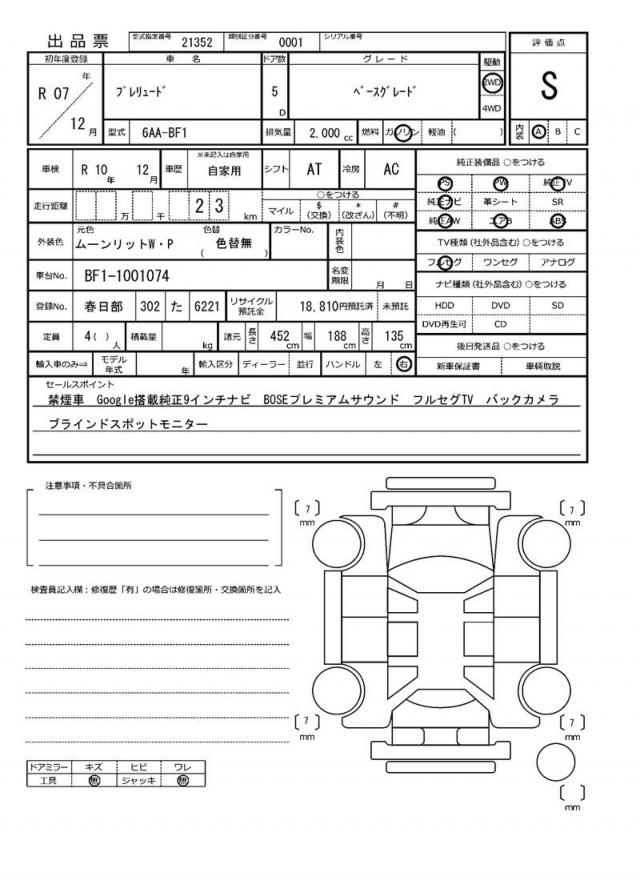 出品票 型式指定番号 21352 類別区分番号 0001 シリアル番号
評価点
S
内装 A B C
初年度登録 車名 ドア数 グレード 駆動
R 07 年 12 月 プレリュード 5 D ベースグレード 2WD 4WD
型式 6AA-BF1 排気量 2,000 cc 燃料 ガソリン 軽油 ( )
車検 R 10 年 12 月 車歴 ※未記入は自家用 自家用 シフト AT 冷房 AC
走行距離 万 千 2 3 km ○をつける
マイル $ (交換) * (改ざん) # (不明)
外装色 元色 ムーンリットW・P 色替 ( 色替無 ) カラーNo. 内装色
車台No. BF1-1001074 名変期限 月 日
登録No. 春日部 302 た 6221 リサイクル預託金 18,810円預託済 未預託
定員 4( ) 人 積載量 kg 諸元 長さ 452 cm 幅 188 cm 高さ 135 cm
輸入車のみ⇒ モデル年式 年 輸入区分 ディーラー 並行 ハンドル 左 右
純正装備品 ○をつける
PS PW 純正TV
純正ナビ 革シート SR
純正AW エアB ABS
TV種類(社外品含む)○をつける
フルセグ ワンセグ アナログ
ナビ種類(社外品含む)○をつける
HDD DVD SD
DVD再生可 CD
後日発送品 ○をつける
新車保証書 車輌取説
セールスポイント
禁煙車 Google搭載純正9インチナビ BOSEプレミアムサウンド フルセグTV バックカメラ
ブラインドスポットモニター
注意事項・不具合箇所
検査員記入欄：修復歴「有」の場合は修復箇所・交換箇所を記入
[ 7 ] mm
[ 7 ] mm
[ 7 ] mm
[ 7 ] mm
[ ] mm
ドアミラー キズ ヒビ ワレ
工具 無 ジャッキ 無